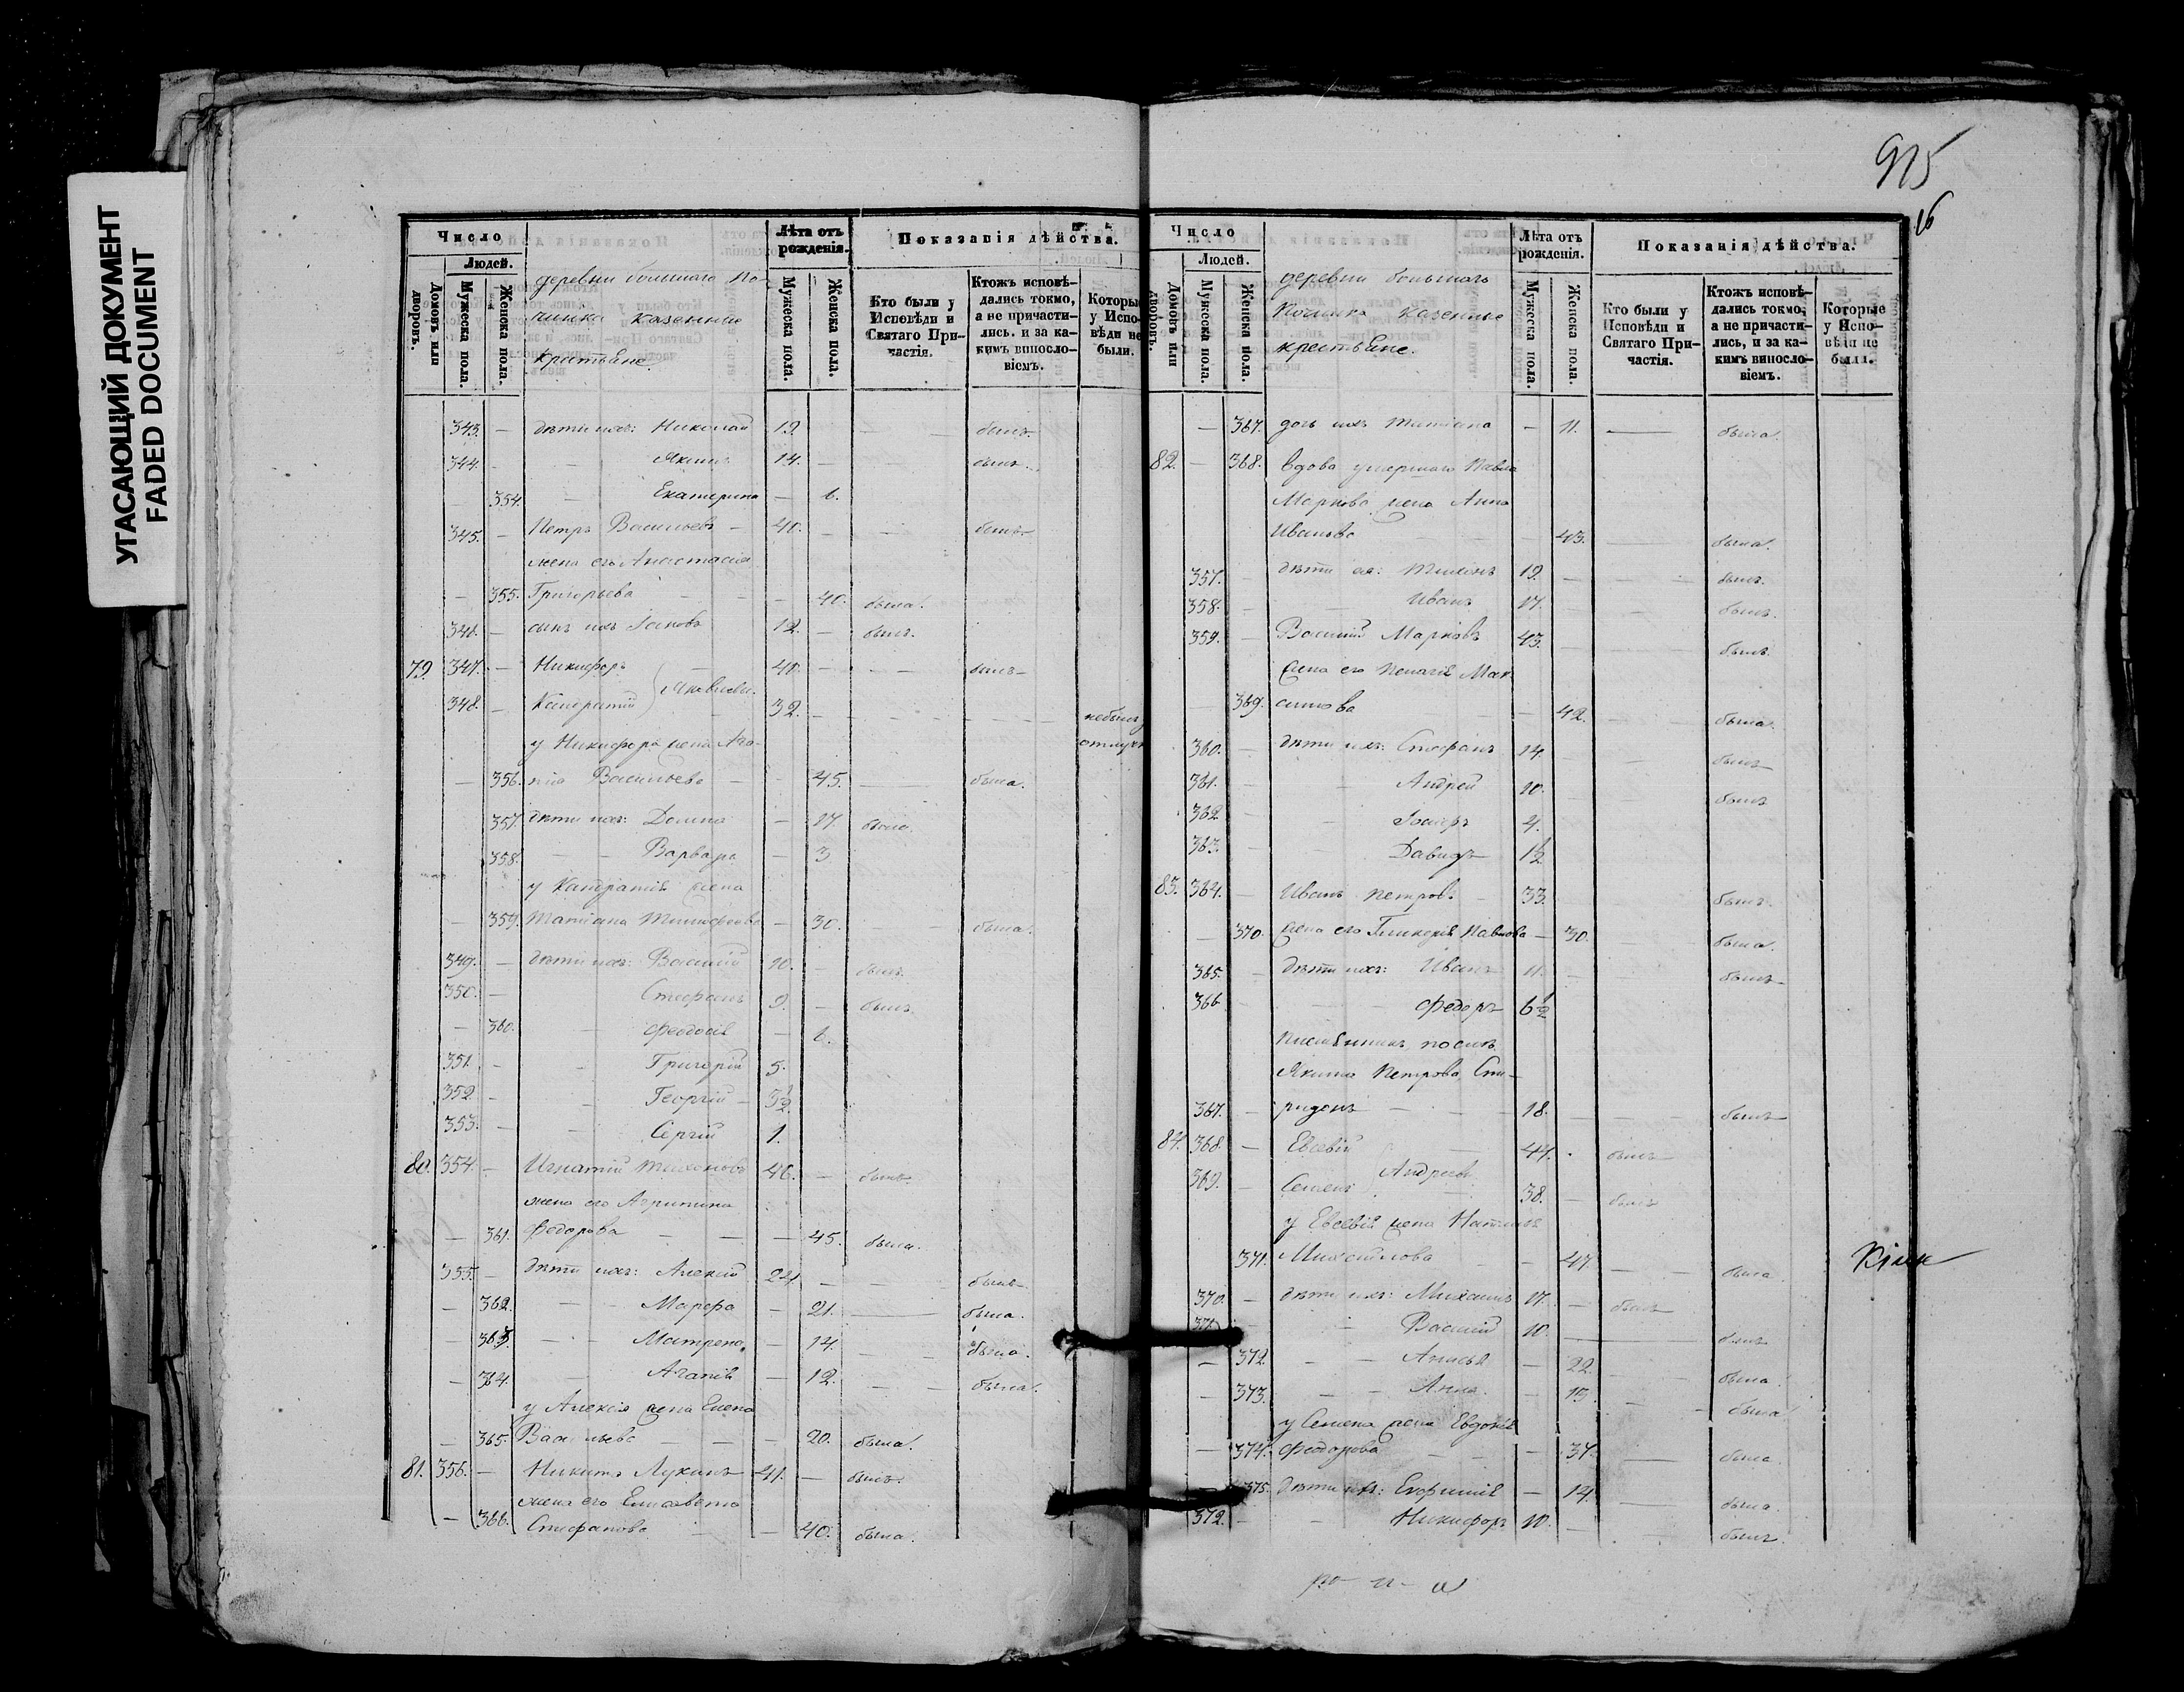 УГАСАЮЩИЙ ДОКУМЕНТ
FADED DOCUMENT
Число
Людей.
Домовъ или дворовъ.
Мужеска пола.
Женска пола.
деревни большаго По-
чинка казенные
крестьяне.
Лѣта отъ рожденія.
Мужеска пола.
Женска пола.
Показанія дѣйства.
Кто были у Исповѣди и Святаго Причастія.
Ктожъ исповѣдались токмо, а не причастились, и за какимъ винословіемъ.
Которые у Исповѣди не были.
343. — дѣти ихъ: Николай 19. былъ
344. — Якимъ 14. — былъ
— 354. — Екатерина — 6.
345. — Петръ Васильевъ — 40. — былъ
жена его Анастасія
— 355. Григорьева — 40. была.
346. — сынъ ихъ Іаковъ 12. — былъ.
79. 347. — Никифоръ 41. — былъ
Яковлевы
348. — Кандратій 32. — небылъ
у Никифора жена Ага-
— 356. пія Васильева — 45. — была.
357. дѣти ихъ: Домна — 17. была.
358. — Варвара — 3
у Кандратія жена
— 359. Татіана Тимофеева — 30. — была.
349. — дѣти ихъ: Василій 10. — былъ.
350. — Стефанъ 9. — былъ.
— 360. — Феодосія — 6.
351. — Григорій 5.
352. — Георгій — 3½
353. — Сергій 1.
80. 354. — Игнатій Тихоновъ 46. — былъ.
жена его Агрипина
— 361. Федорова — 45. была.
355. — дѣти ихъ: Алексій 24 — былъ
— 362. — Марфа — 21. — была.
— 363. — Матрена — 14. — была.
— 364. — Агапія — 12. — была.
у Алексія жена Елена
— 365. Васильева — 20. была.
81. 356. — Никита Лукинъ 41. — былъ.
жена его Елисавета
— 366. Стефанова — 40. была.
915
16
Число
Людей.
Домовъ или дворовъ.
Мужеска пола.
Женска пола.
деревни большаго
Починка казенные
крестьяне.
Лѣта отъ рожденія.
Мужеска пола.
Женска пола.
Показанія дѣйства.
Кто были у Исповѣди и Святаго Причастія.
Ктожъ исповѣдались токмо, а не причастились, и за какимъ винословіемъ.
Которые у Исповѣди не были.
— 367. дочь ихъ Татіана — 11. — была.
82. — 368. вдова умершаго Павла
Маркова жена Анна
Иванова — 43. — была.
357. — дѣти ея: Тихонъ 19. — былъ.
358. — Иванъ 17. — былъ.
359. — Василій Марковъ 43. — былъ.
жена его Пелагія Мак
369. симова — 42. — была.
360. — дѣти ихъ: Стефанъ 14. — былъ
361. — Андрей 10. — былъ
362 — 4.
363. — Давидъ 1½
83. 364. — Иванъ Петровъ — 33. былъ.
— 370. жена его Гликерія Павлова — 30. — была.
365. — дѣти ихъ: Иванъ 11. — былъ
366 — Федоръ 6½
племянникъ
Якима Петрова Спи-
367. — ридонъ — 18. — былъ
84. 368. — Евсевій 44. былъ
Андреевы
369. — Семенъ 38. — былъ
у Евсевія жена Наталья
371. Михайлова — 47. — была
370. — дѣти ихъ: Михаилъ 17. — былъ
371. — Василій 10. — былъ
— 372. — Анисья — 22. — была.
— 373. — Анна — 15. — была
у Семена жена Евдокія
— 374. Федорова — 37. — была.
— 375. дѣти ихъ: Евфимія — 14. — была.
372. — Никифоръ 10. — былъ.